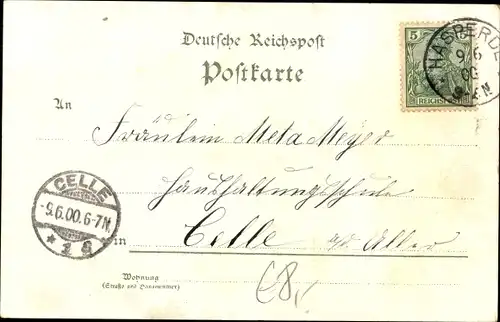 Deutsche Reichspost
Postkarte
5
REICHSPOST
HASPERDE
9/6
00
N
An
Fräulein Meta Meyer
Haushaltungsschule
in Celle a/d Aller
CELLE
9.6.00.6-7N.
* 1 a
Wohnung
(Straße und Hausnummer)
€8,-